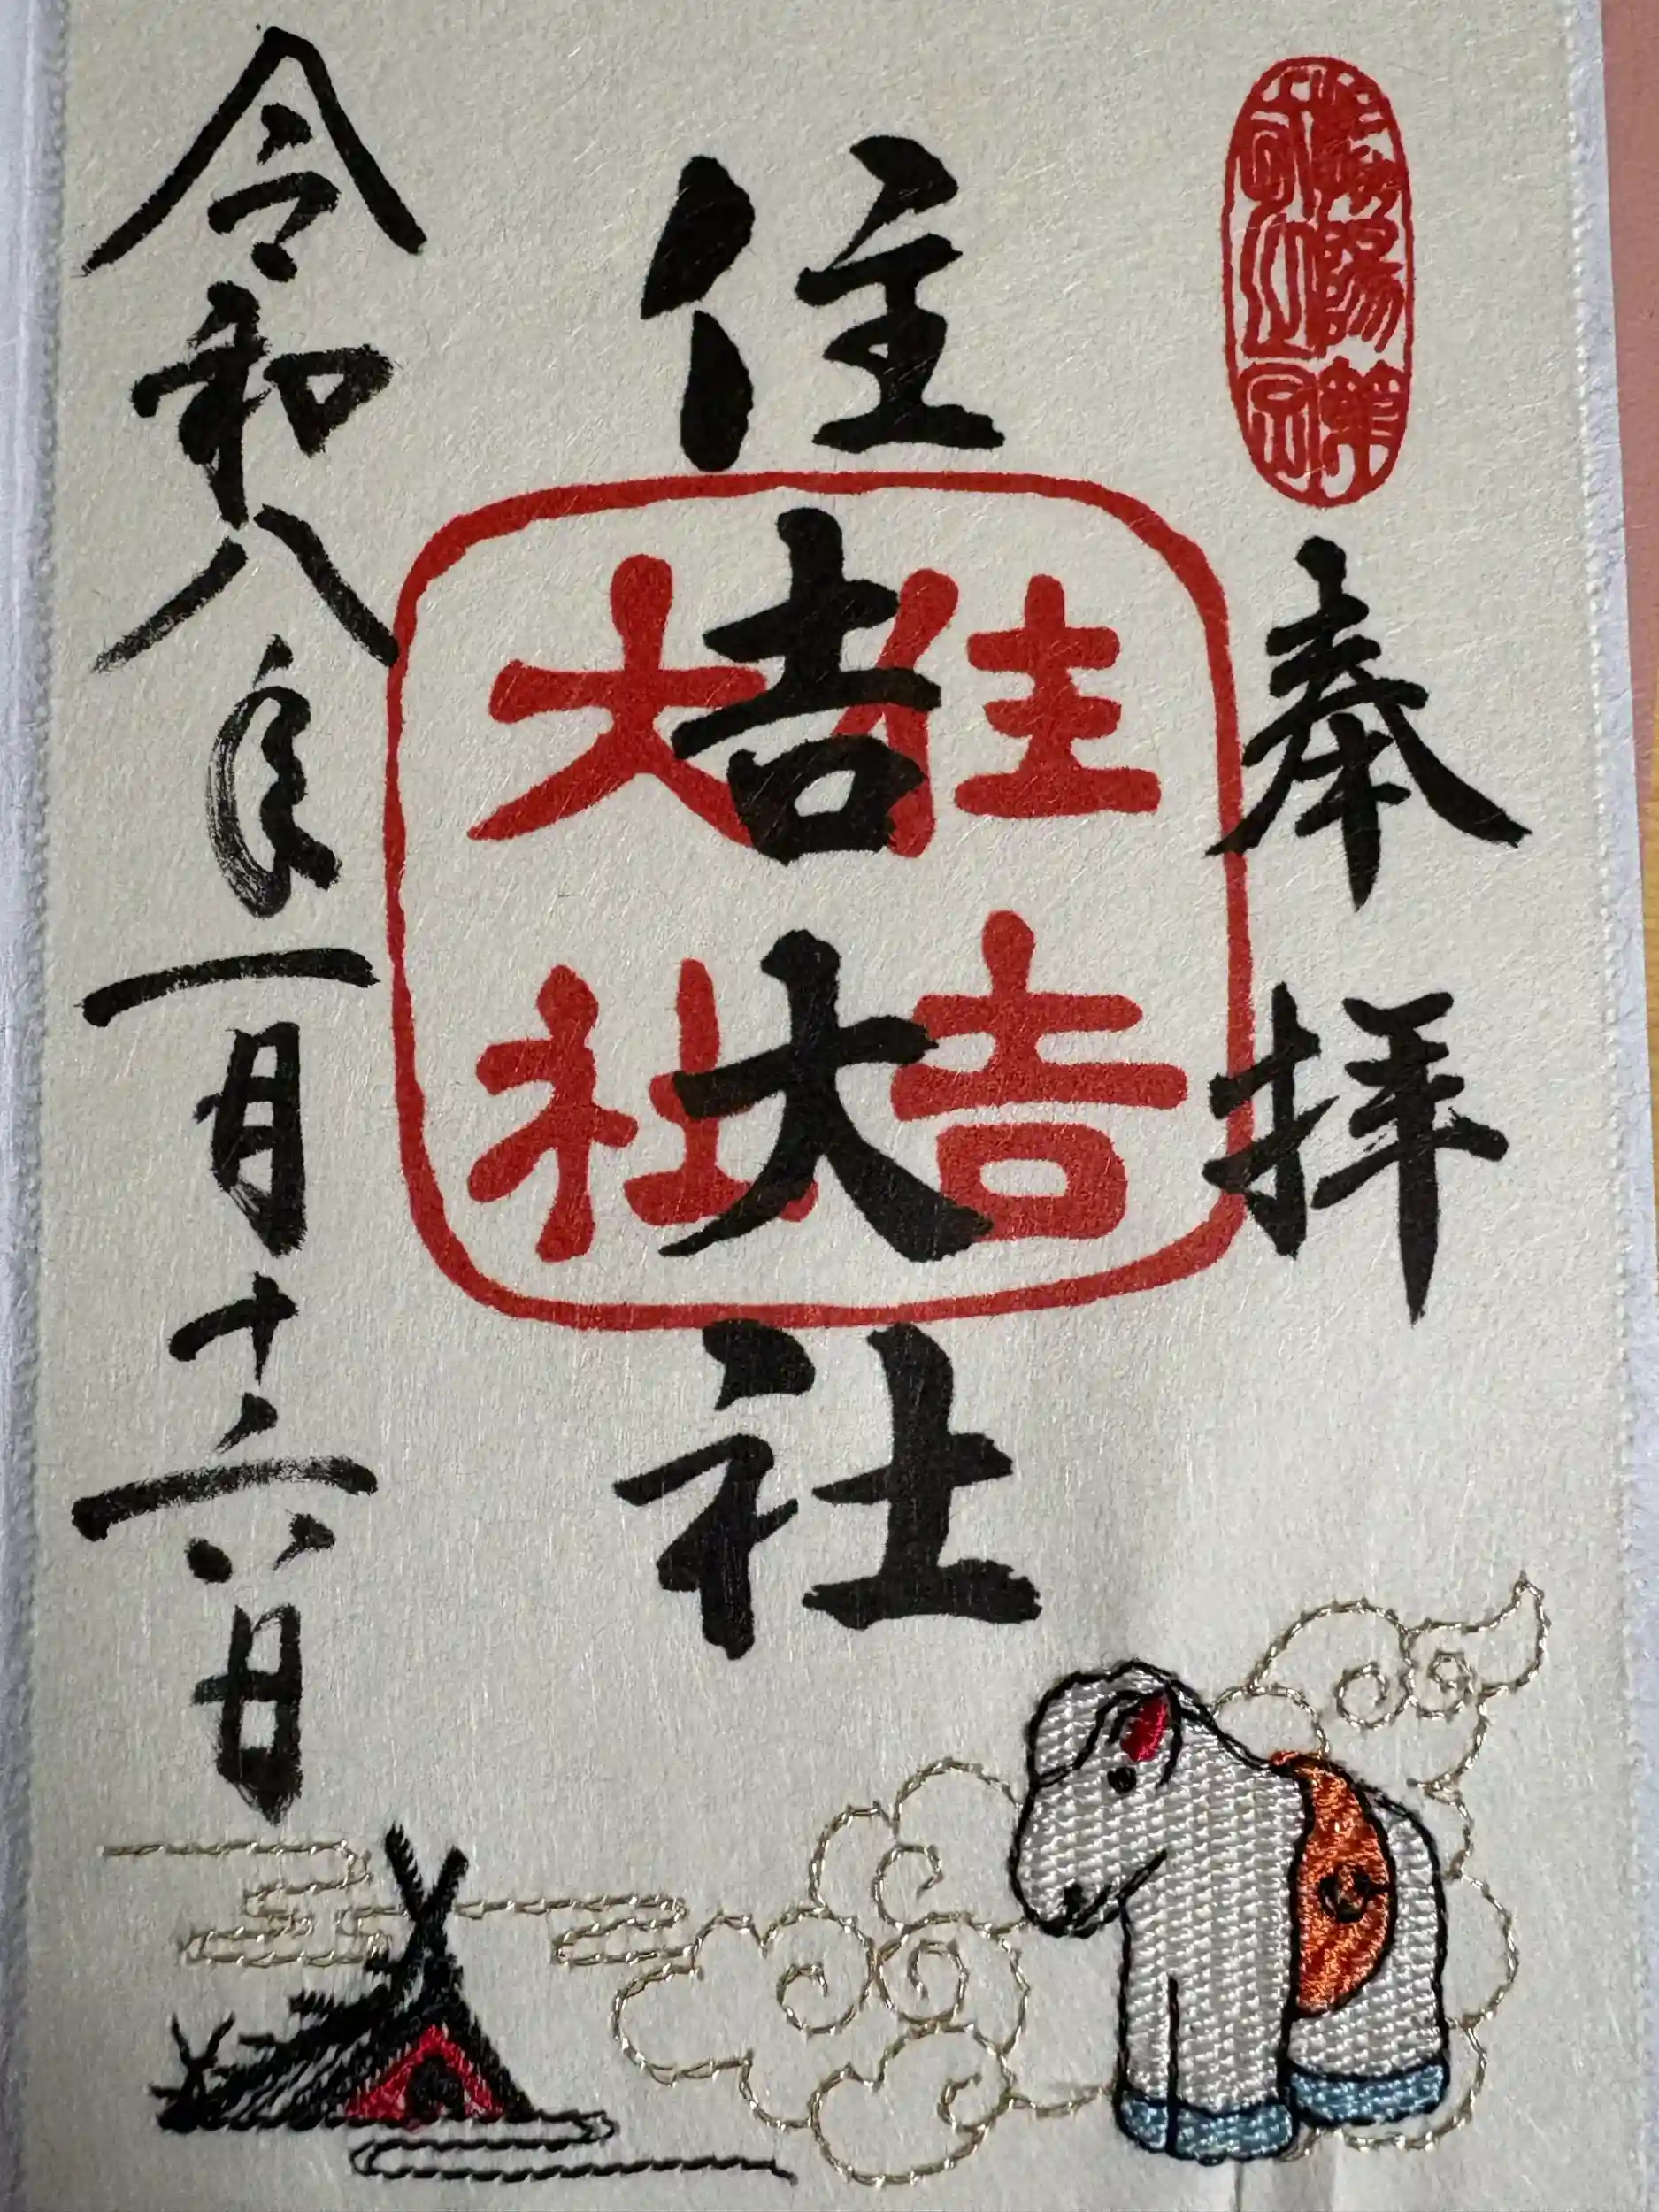 奉拝
住吉大社
住吉
大社
令和八年一月十六日